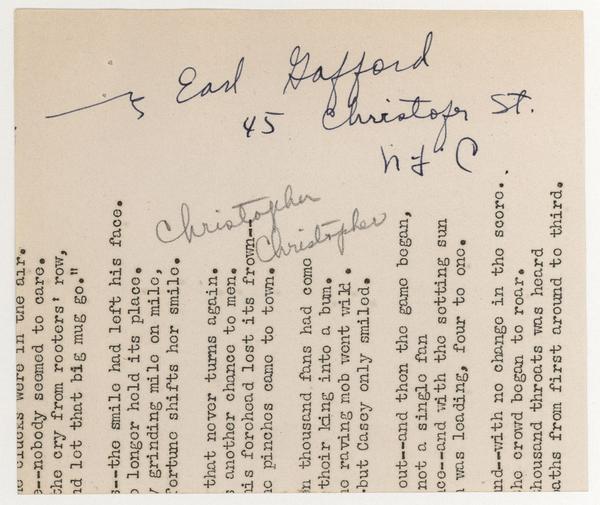 Earl Gafford
45 Christofer St.
N Y C
Christopher
Christopher
were in the air.
e--nobody seemed to care.
the cry from rooters' row,
nd let that big mug go."
s--the smile had left his face.
o longer held its place.
y grinding mile on mile,
ortune shifts her smile.
that never turns again.
s another chance to men.
his forehead lost its frown--
he pinches came to town.
n thousand fans had come
their king into a bum.
he raving mob went wild.
but Casey only smiled.
out--and then the game began,
not a single fan
ce--and with the setting sun
was leading, four to one.
nd--with no change in the score.
he crowd began to roar.
housand throats was heard
aths from first around to third.